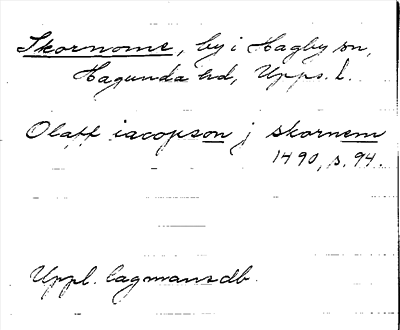 Skornome, by i Hagby sn,
Hagunda hd, Upps. l.
Olaff iacopson j skornem
1490, s. 94.
Uppl. lagmansdb.